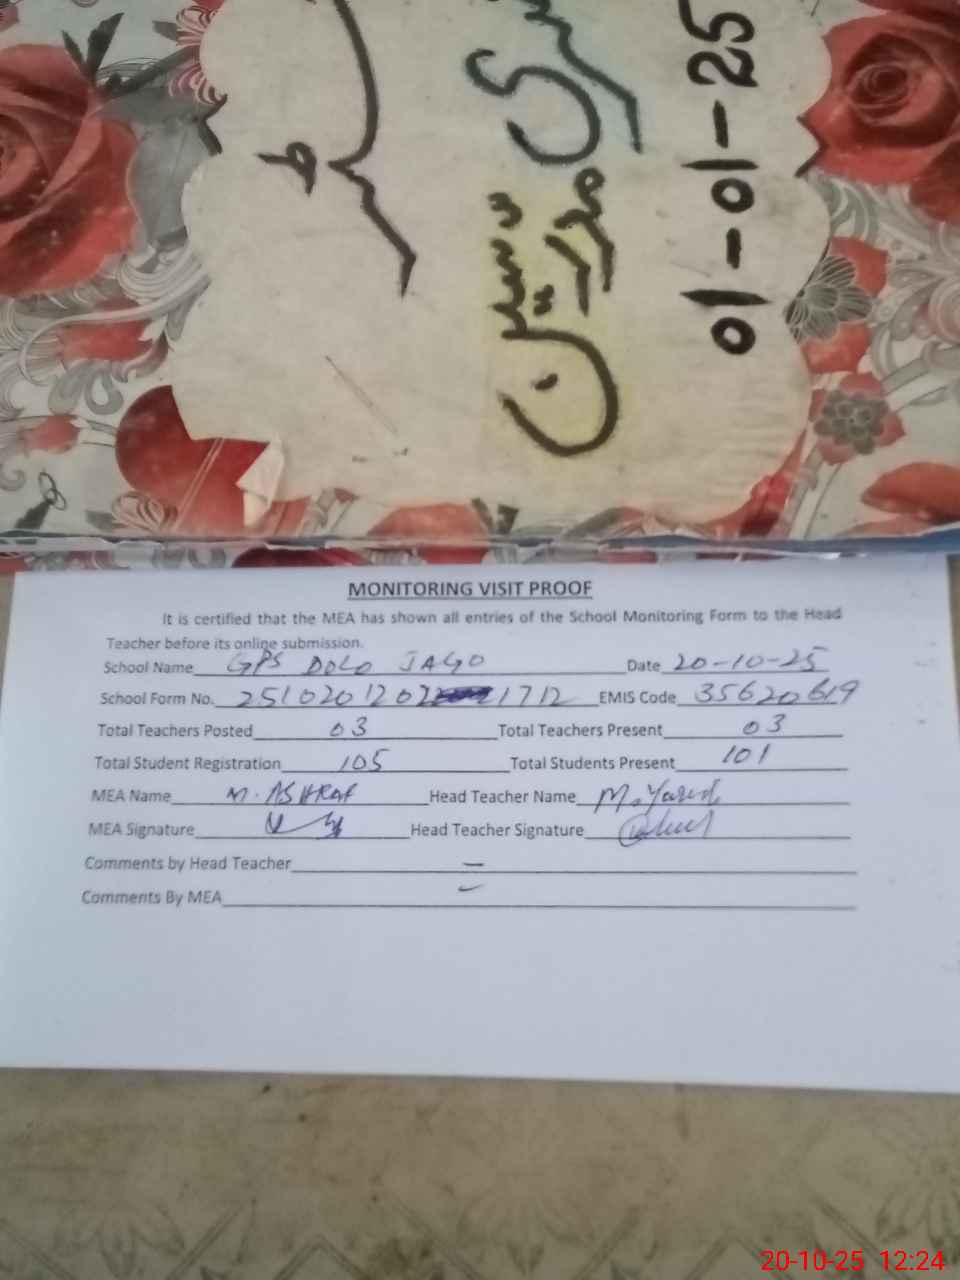 مدرسین
01-01-25
MONITORING VISIT PROOF
It is certified that the MEA has shown all entries of the School Monitoring Form to the Head
Teacher before its online submission.
School Name GPS DOLO JAGO Date 20-10-25
School Form No. 2510201202 1712 EMIS Code 35620619
Total Teachers Posted 03 Total Teachers Present 03
Total Student Registration 105 Total Students Present 101
MEA Name M. ASHRAF Head Teacher Name M.
MEA Signature Head Teacher Signature
Comments by Head Teacher —
Comments By MEA —
20-10-25 12:24